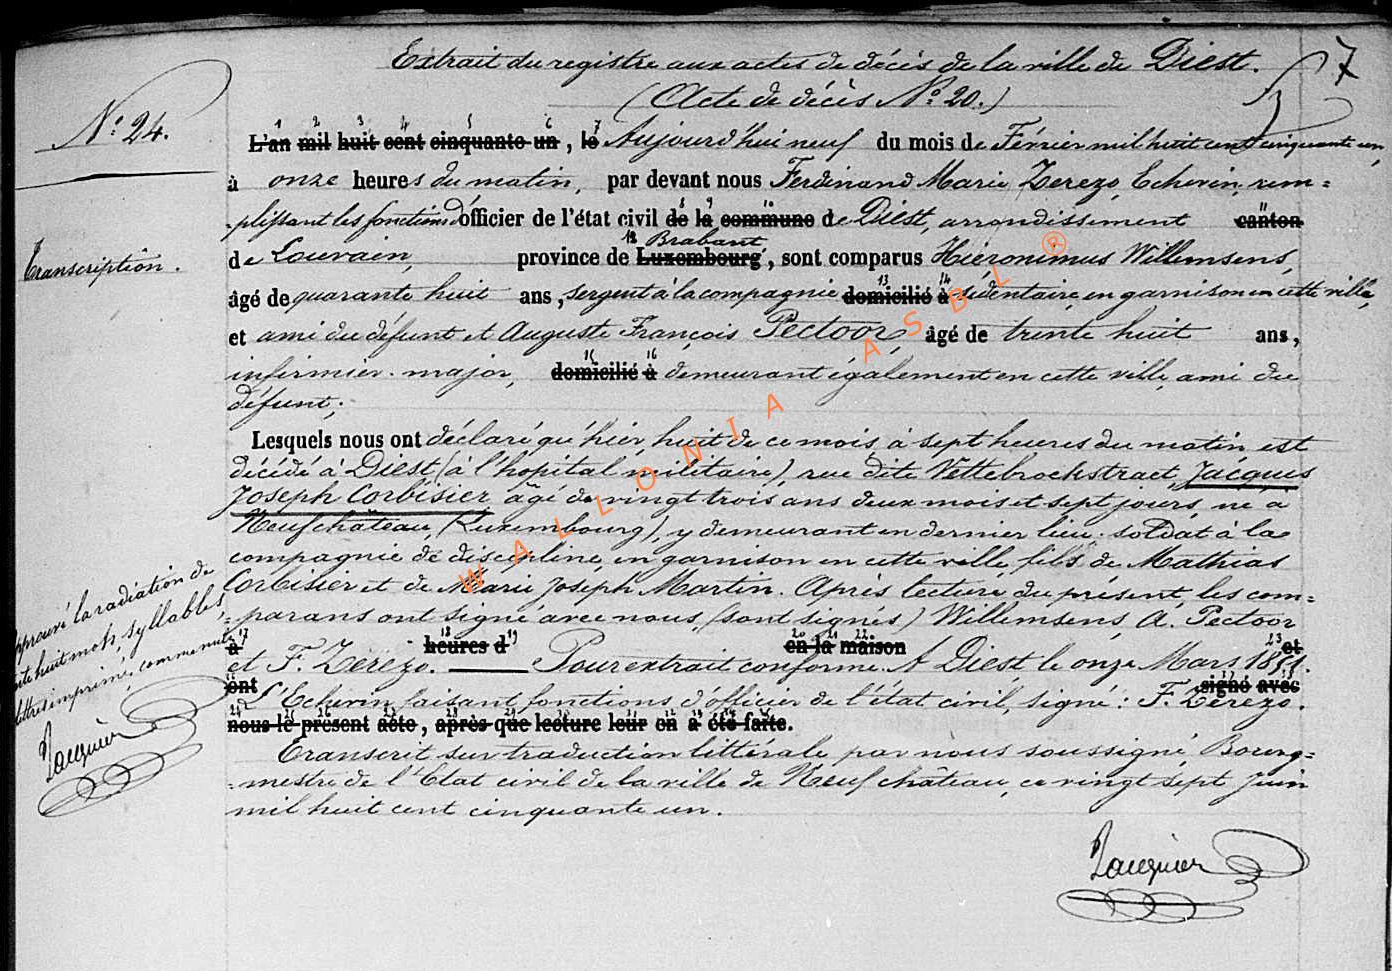 Extrait du registre aux actes de décès de la ville de Diest. 7
(Acte de décès No. 20.)
No. 24.
L'an mil huit cent cinquante-un, le Aujourd'hui neuf du mois de Février mil huit cent cinquante un,
à onze heures du matin, par devant nous Ferdinand Marie Zerezo Echevin rem=
plissant les fonctions d'officier de l'état civil de la commune de Diest, arrondissement canton
Transcription.
de Louvain, province de Luxembourg Brabant, sont comparus Hiéronimus Willemsens,
âgé de quarante huit ans, sergent à la compagnie domicilié à sédentaire en garnison en cette ville,
et ami du défunt et Auguste François Pectoor, âgé de trente huit ans,
infirmier-major, domicilié à demeurant également en cette ville ami du
défunt;
Lesquels nous ont déclaré qu'hier, huit de ce mois, à sept heures du matin est
décédé à Diest, (à l'hopital militaire), rue dite Jacques
Joseph Corbisier âgé de vingt trois ans deux mois et sept jours, né à
Neufchâteau, (Luxembourg), y demeurant en dernier lieu. soldat à la
compagnie de discipline, en garnison en cette ville, fils de Mathias
Corbisier et de Marie Joseph Martin. Après lecture du présent, les com=
parans ont signé avec nous, (sont signés) Willemsens, A. Pectoor
à heures d' en la maison et
et F. Zerezo. Pour extrait conforme. A Diest, le onze Mars 1851.
ont signé avec
L'Echevin faisant fonctions d'officier de l'état civil, signé: F. Zerezo.
nous le présent acte, après que lecture leur en a été faite.
Transcrit sur traduction littérale par nous soussigné, Bourg=
mestre de l'Etat civil de la ville de Neufchâteau, ce vingt sept Juin
mil huit cent cinquante un.
approuvé la radiation de
huit mots, syllabes,
lettres imprimé.
WALLONIA ASBL ®